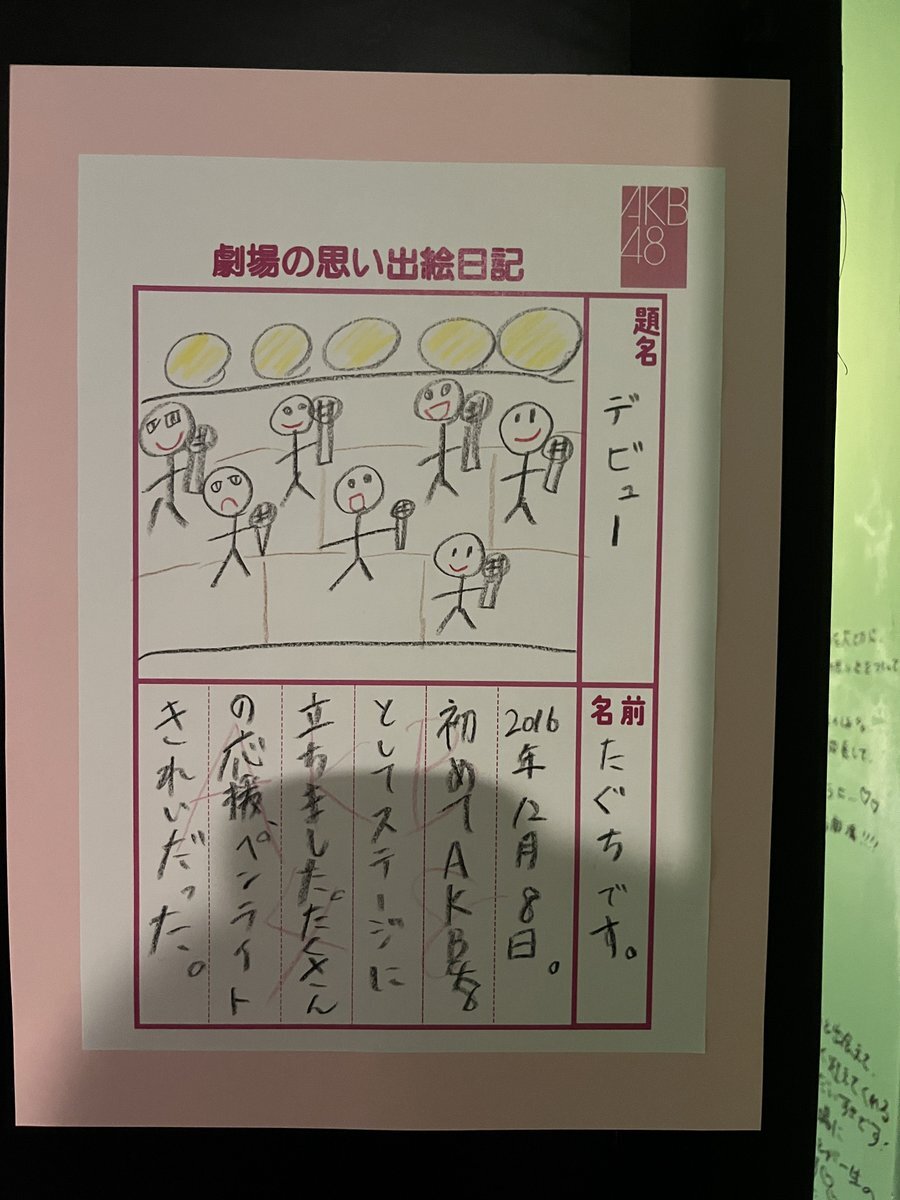 AKB
48
劇場の思い出絵日記
題名
デビュー
名前
たぐちです。
2016年12月8日。
初めてAKB48
としてステージに
立ちました。たくさん
の応援、ペンライト
きれいだった。